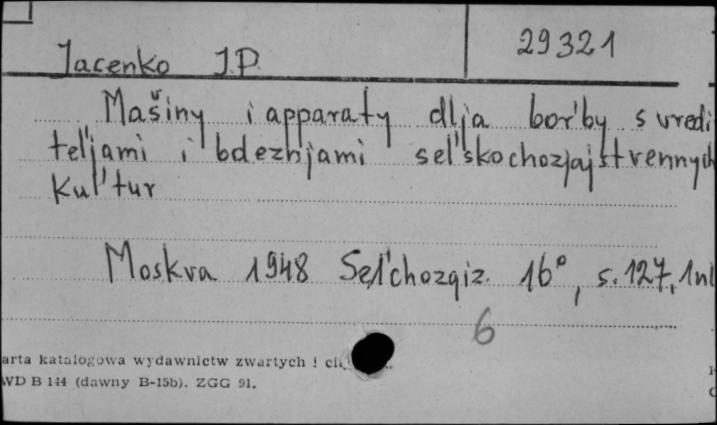 29321
Jacenko J.P.
Mašiny i apparaty dlja bor'by s vredi
tel'jami i bdeznjami sel'skochozjajstvennych
kul'tur
Moskva 1948 Sel'chozgiz. 16°, s. 127, 1nl
6
arta katalogowa wydawnictw zwartych i
WD B 144 (dawny B-15b). ZGG 91.